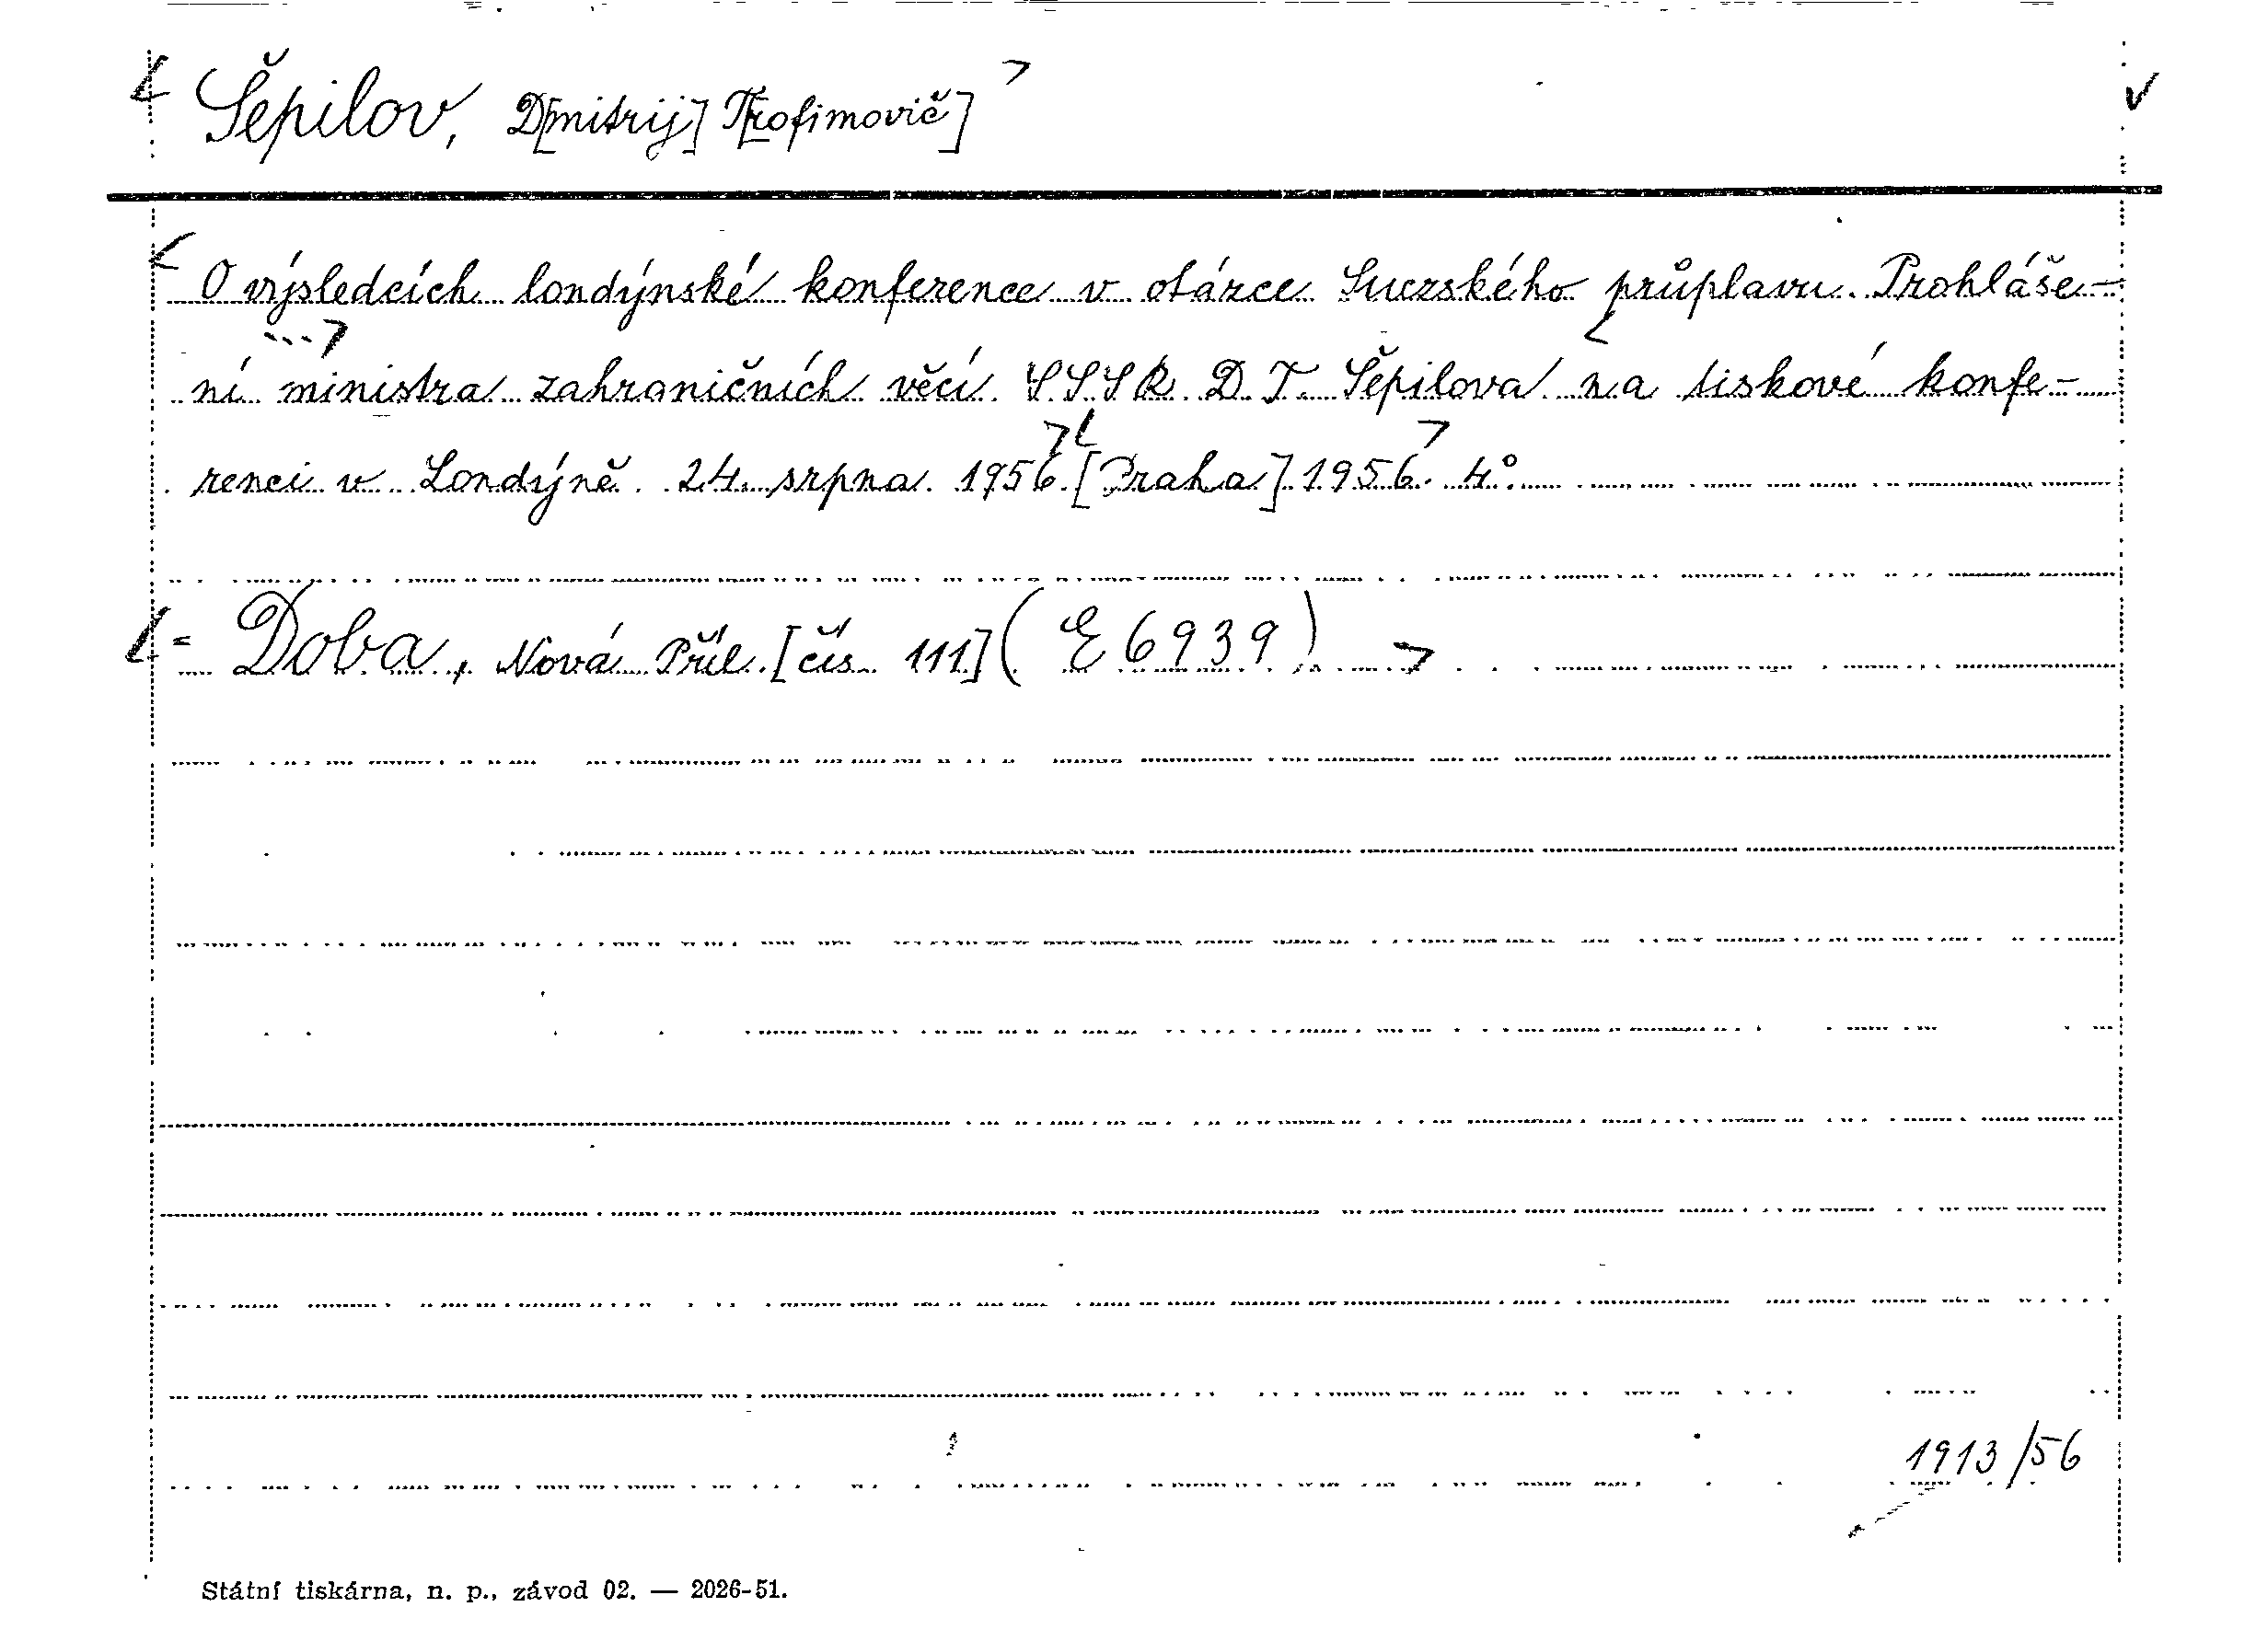 Šepilov, D[mitrij] T[rofimovič]
O výsledcích londýnské konference v otázce Suezského průplavu. Prohláše-
ní ministra zahraničních věcí SSSR D. T. Šepilova na tiskové konfe-
renci v Londýně 24. srpna 1956. [Praha] 1956. 4°.
= Doba, Nová Příl. [čís. 111] (E 6939)
1913/56
Státní tiskárna, n. p., závod 02. — 2026-51.